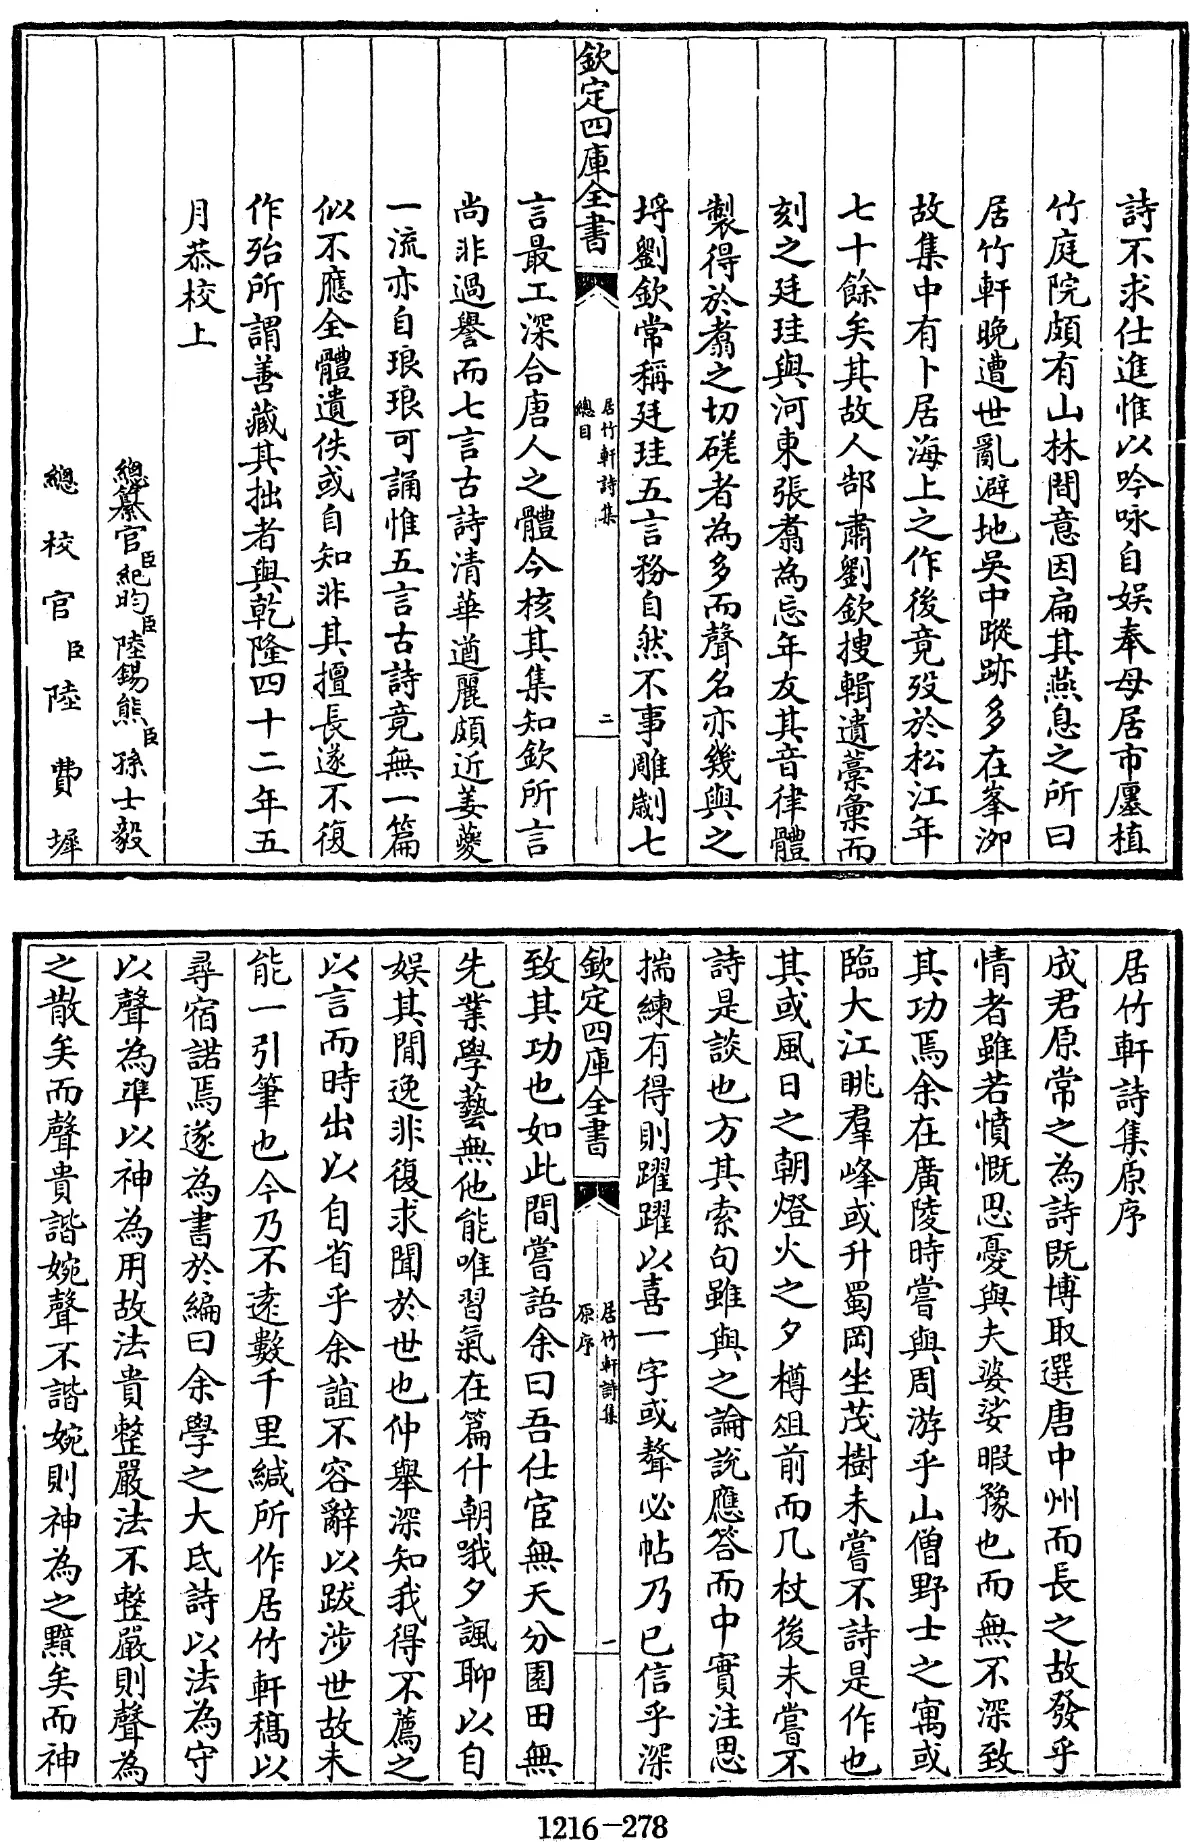 詩不求仕進惟以吟咏自娱奉母居市廛植
竹庭院頗有山林間意因扁其燕息之所曰
居竹軒晚遭世亂避地吳中蹤跡多在峯泖
故集中有卜居海上之作後竟歿於松江年
七十餘矣其故人郜肅劉欽搜輯遺藁彚而
刻之廷珪與河東張翥為忘年友其音律體
製得於翥之切磋者為多而聲名亦幾與之
埒劉欽常稱廷珪五言務自然不事雕劌七
欽定四庫全書
居竹軒詩集
總目
二
言最工深合唐人之體今核其集知欽所言
尚非過譽而七言古詩清華遒麗頗近姜夔
一流亦自琅琅可誦惟五言古詩竟無一篇
似不應全體遺佚或自知非其擅長遂不復
作殆所謂善藏其拙者與乾隆四十二年五
月恭校上
總纂官臣紀昀臣陸錫熊臣孫士毅
總校官臣陸費墀
居竹軒詩集原序
成君原常之為詩既博取選唐中州而長之故發乎
情者雖若憤慨思憂與夫婆娑暇豫也而無不深致
其功焉余在廣陵時嘗與周游乎山僧野士之寓或
臨大江眺羣峰或升蜀岡坐茂樹未嘗不詩是作也
其或風日之朝燈火之夕樽俎前而几杖後未嘗不
詩是談也方其索句雖與之論說應答而中實注思
揣練有得則躍躍以喜一字或聱必帖乃已信乎深
欽定四庫全書
居竹軒詩集
原序
一
致其功也如此間嘗語余曰吾仕宦無天分園田無
先業學藝無他能唯習氣在篇什朝哦夕諷聊以自
娱其閒逸非復求聞於世也仲舉深知我得不薦之
以言而時出以自省乎余誼不容辭以跋涉世故未
能一引筆也今乃不遠數千里緘所作居竹軒稿以
尋宿諾焉遂為書於編曰余學之大氐詩以法為守
以聲為準以神為用故法貴整嚴法不整嚴則聲為
之散矣而聲貴諧婉聲不諧婉則神為之黯矣而神
1216-278